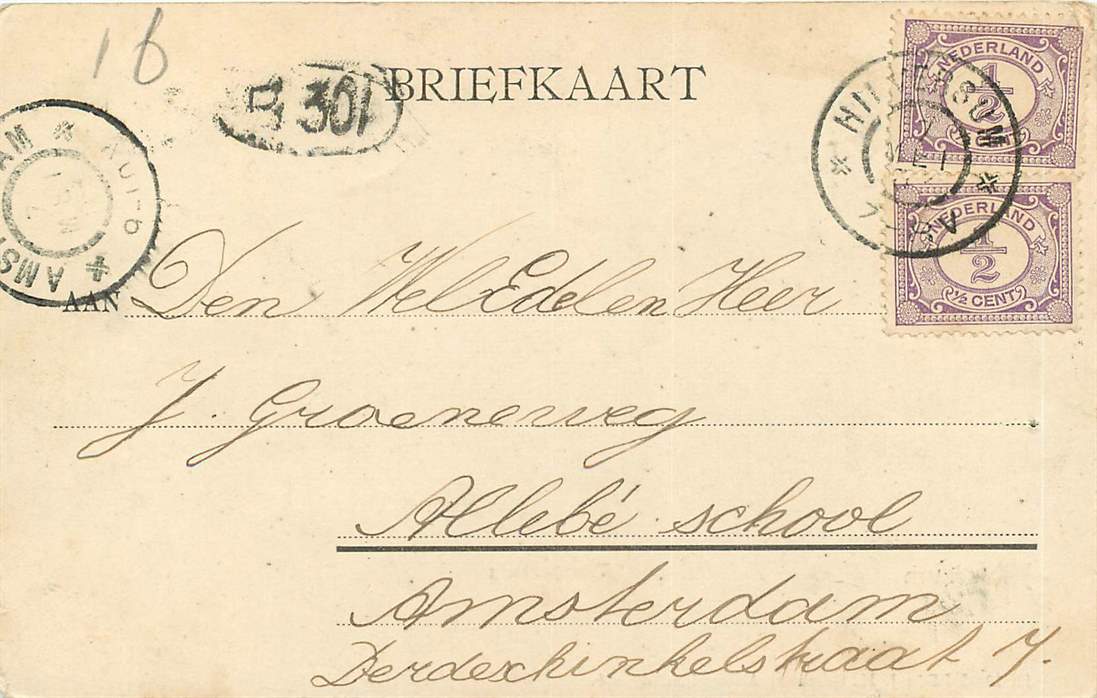 16
BRIEFKAART
301
NEDERLAND
1/2
NEDERLAND
1/2
1/2 CENT
AMS
AAN Den Wel Edelen Heer
J. Groeneweg
Allebé school
Amsterdam
Derdeschinkelstraat 7.